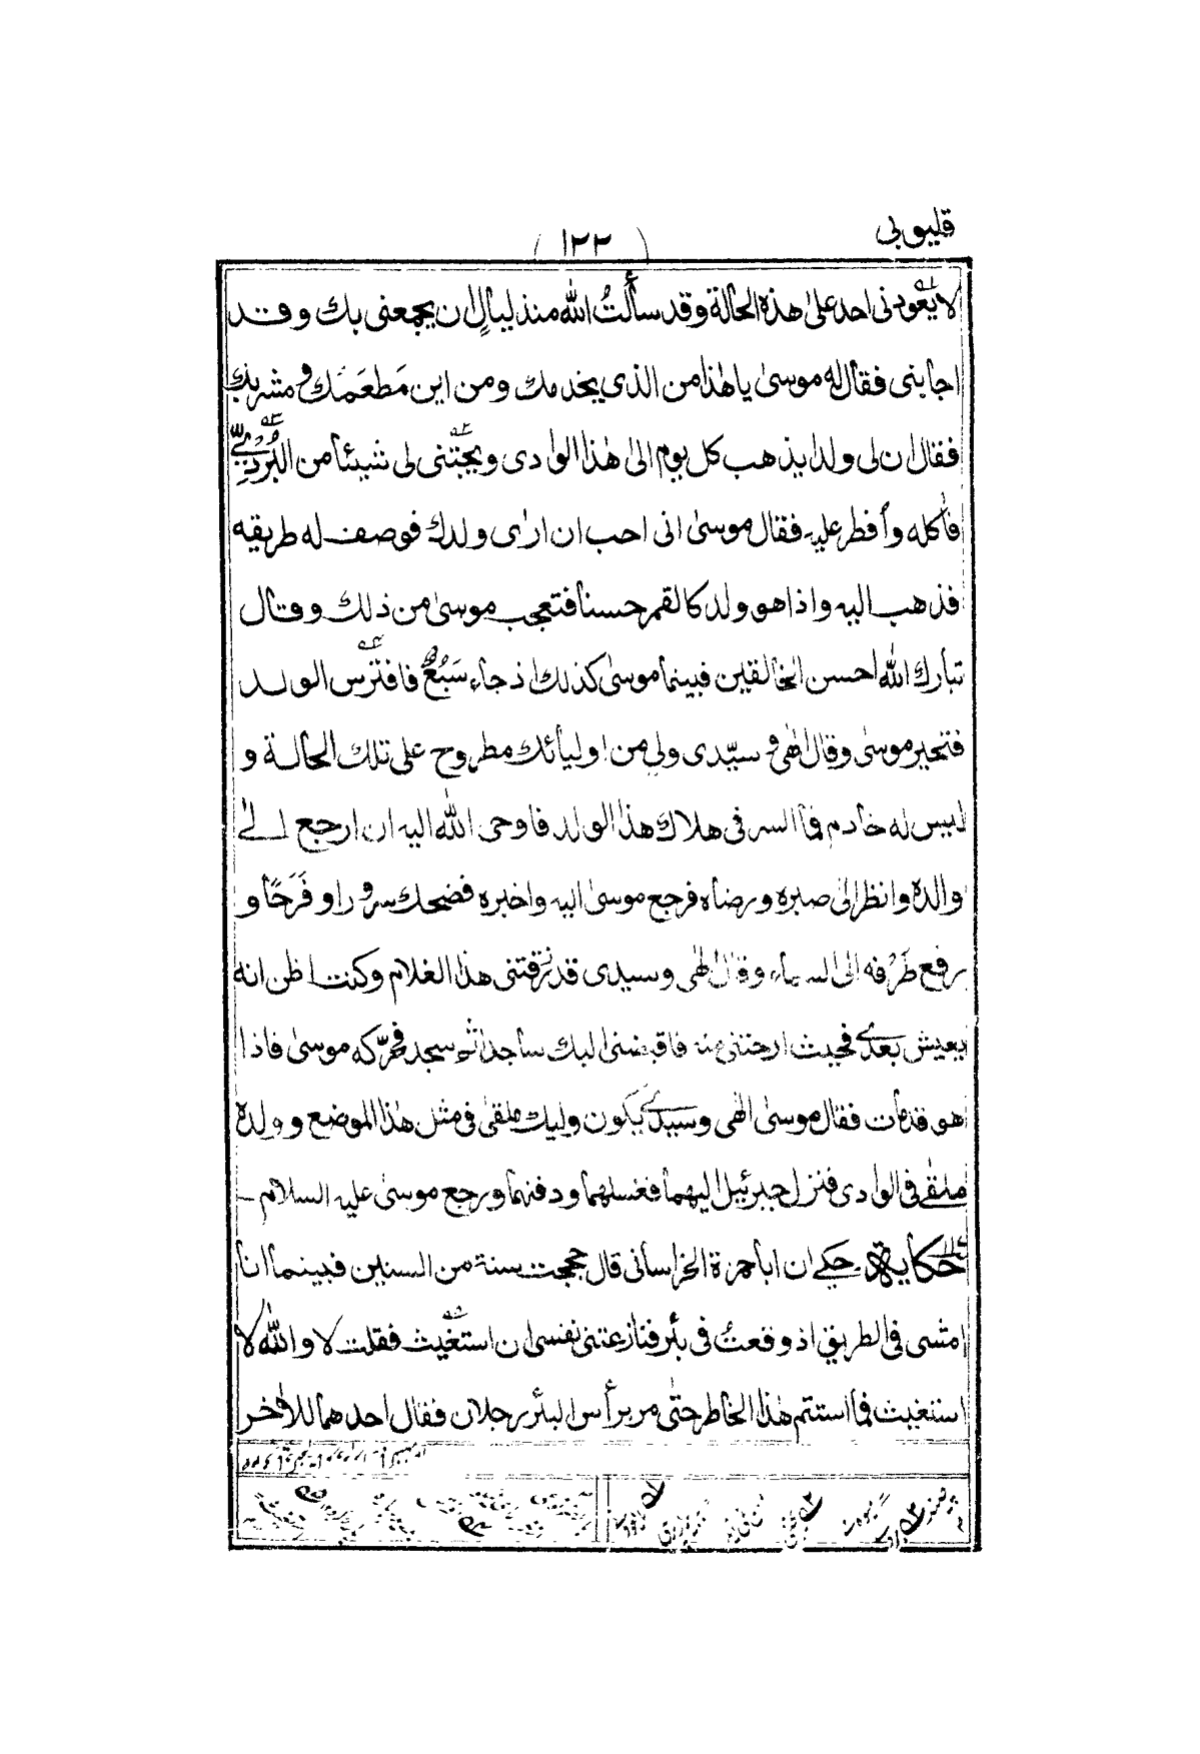 قليوبى
(١٢٢)
لا يعودنى احد على هذه الحالة وقد سألتُ الله منذ ليالٍ ان يجمعنى بك وقد
اجابنى فقال له موسىٰ يا هٰذا من الذى يخدمك ومن اين مَطعَمُك ومشربك
فقال ان لى ولدا يذهب كل يوم الىٰ هٰذا الوادى ويجتنى لى شيئا من البُرْدِىّ
فأكله وأفطر عليه فقال موسىٰ انى احب ان ارٰى ولدك فوصف له طريقه
فذهب اليه واذا هو ولد كالقمر حسنا فتعجب موسىٰ من ذلك وقال
تبارك الله احسن الخالقين فبينما موسىٰ كذلك اذ جاء سَبُعٌ فافترس الولد
فتحير موسىٰ وقال الٰهى وسيّدى ولى من اوليائك مطروح على تلك الحالة و
ليس له خادم فما السر فى هلاك هذا الولد فاوحى الله اليه ان ارجع الىٰ
والده وانظر الىٰ صبره ورضاه فرجع موسىٰ اليه واخبره فضحك سرورا وفَرَحًا و
رفع طَرْفه الى السماء وقال الٰهى وسيدى قد رزقتنى هذا الغلام وكنت اظن انه
يعيش بعدى فحيث ارحتنى منه فاقبضنى اليك ساجدا ثم سجد فحرّكه موسىٰ فاذا
هو قد مات فقال موسىٰ الٰهى وسيدى يكون وليك ملقىٰ فى مثل هٰذا الموضع وولده
ملقٰى فى الوادى فنزل جبرئيل اليهما فغسلهما ودفنهما ورجع موسىٰ عليه السلام -
حكاية حكى ان ابا حمزة الخراسانى قال حججت سنة من السنين فبينما انا
امشى فى الطريق اذ وقعتُ فى بئر فنازعتنى نفسى ان استغيث فقلت لا والله لا
استغيث فما استتم هٰذا الخاطر حتٰى مر برأس البئر رجلان فقال احدهما للاٰخر